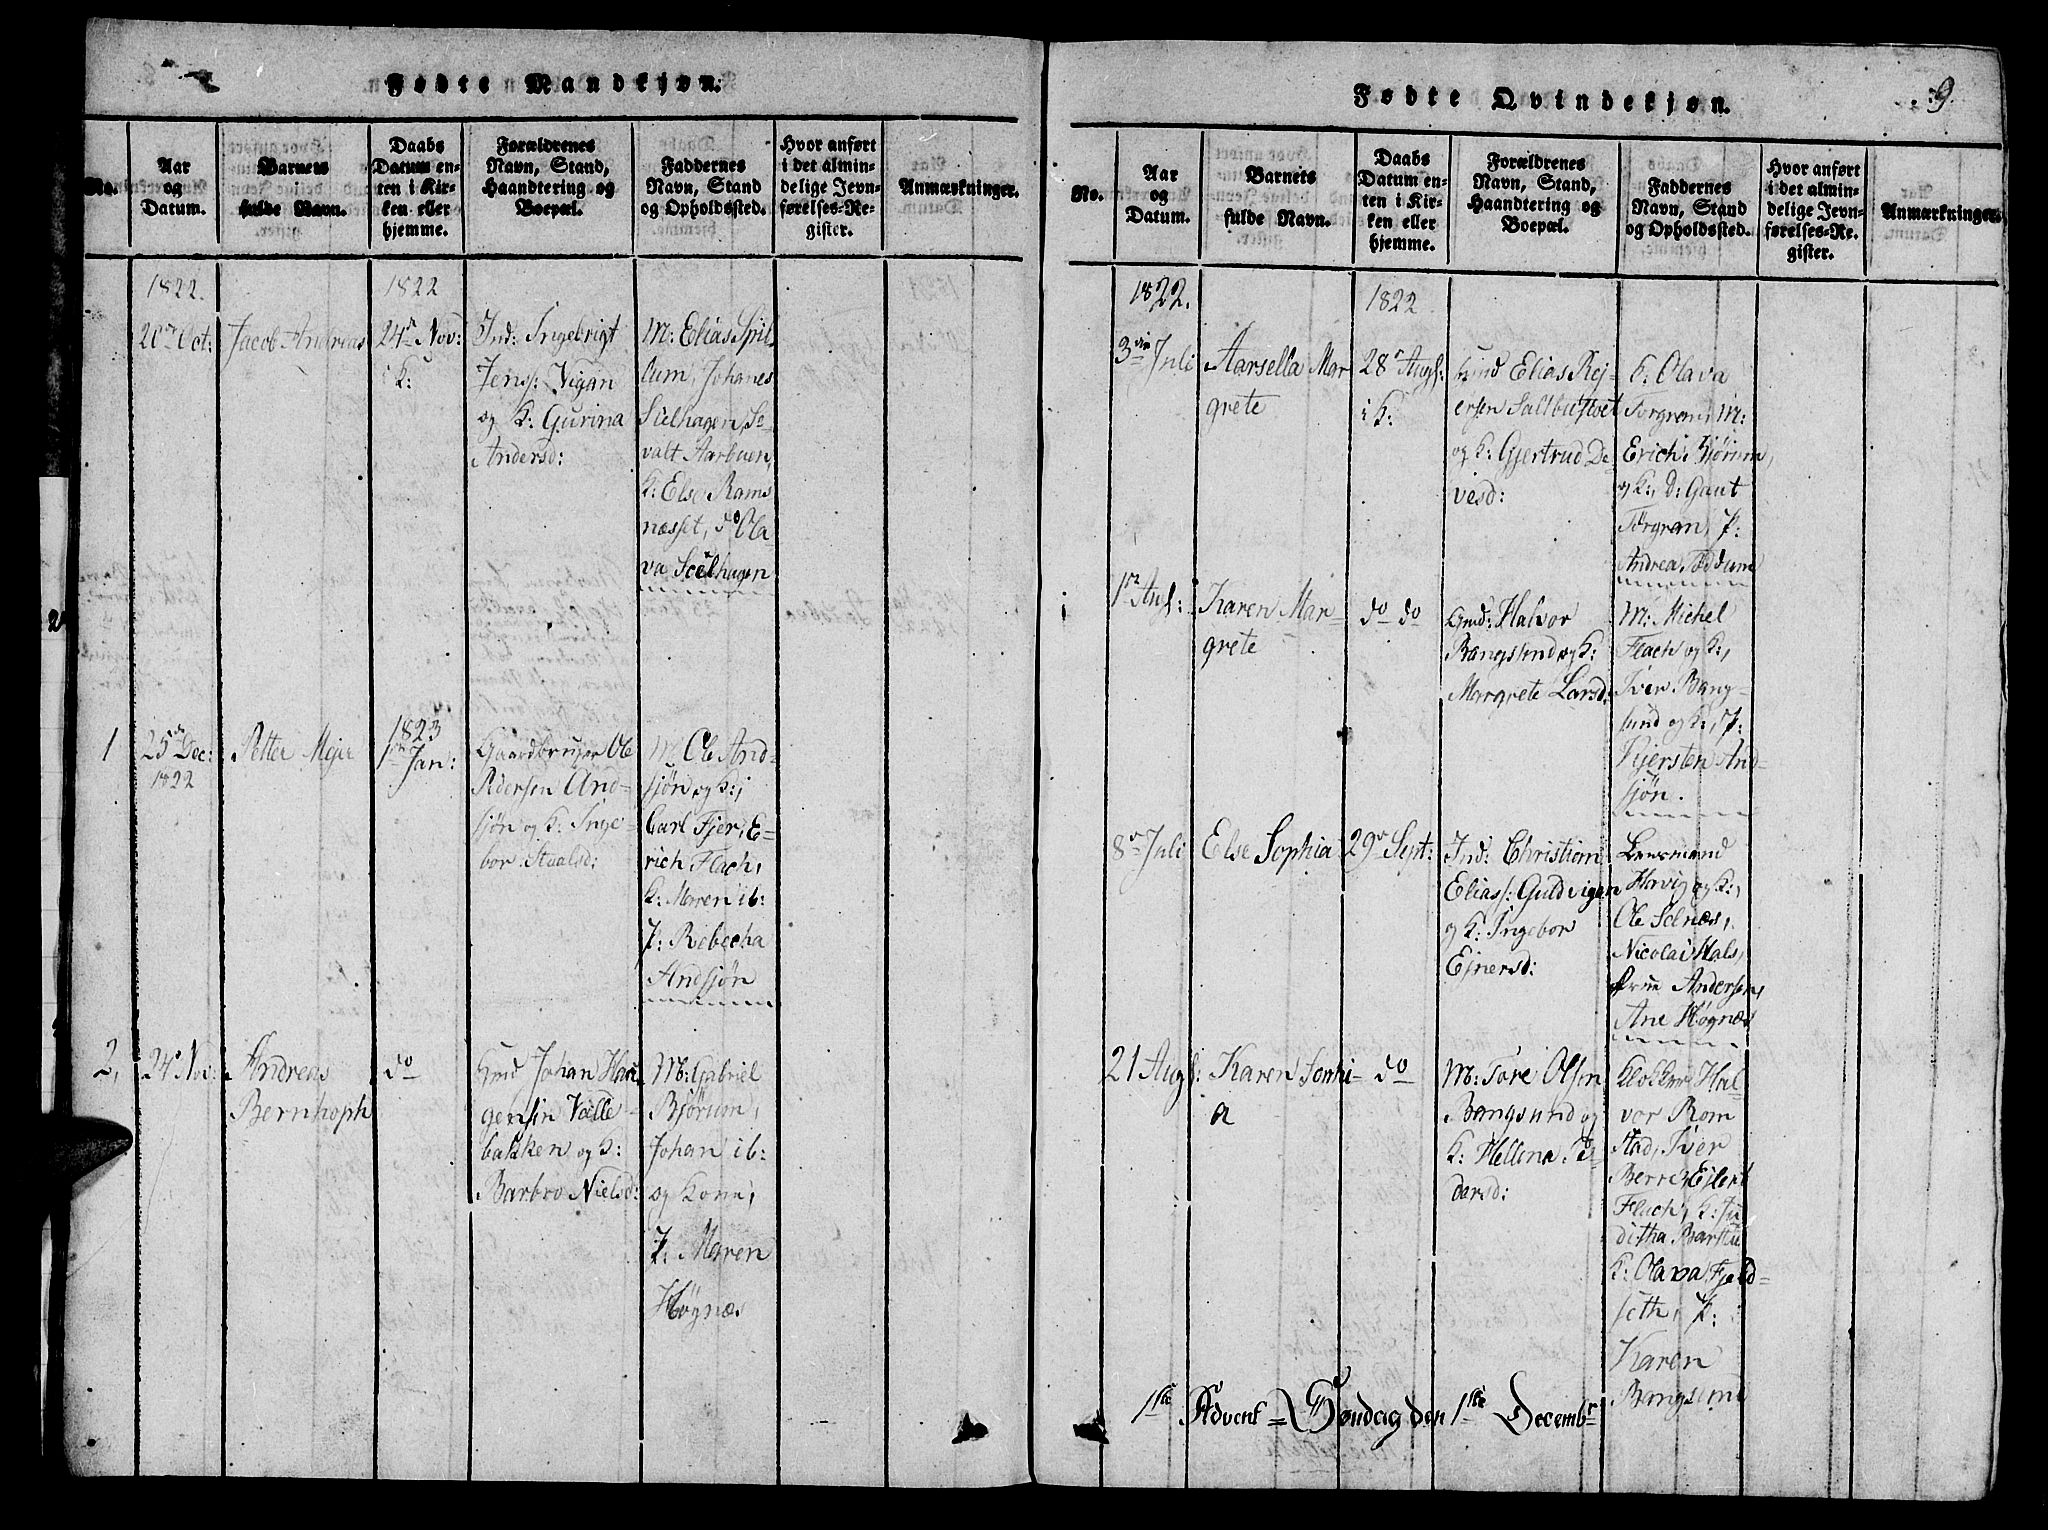 Fødte Mandkjøn.
No.
Aar
og
Datum.
Barnets
fulde Navn.
Daabs
Datum en-
ten i Kir-
ken eller
hjemme.
Forældrenes
Navn, Stand,
Haandtering og
Boepæl.
Faddernes
Navn, Stand
og Opholdssted.
Hvor anført
i det almin-
delige Jevn-
førelses-Re-
gister.
Anmærkninger.
1822.
20de Oct:
Jacob Andreas
1822
24de Nov:
i K:
Ind: Ingebrigt
Jens: Vigan
og K: Gurina
Andersd:
M: Elias Spil-
lum, Johanes
Sielhagen, Se-
valt Aarbuen,
K: Else Rams
næsset, do Ola-
va Scelhagen
1
25de Dec:
1822
Petter Mejer
1823
1ste Jan:
Gaardbruger Ole
Pedersen And-
sjøn og K: Inge-
bor Staalsd:
M: Ole And-
sjøn og K:,
Carl Fjer, E-
rich Flach,
K: Maren ib:
P: Rebecha
Andsjøn
2,
24de Nov:
Andreas
Bernhoph
do
Huusmd Johan Haa-
gensen Valle-
bakken og K:
Barbro Nielsd:
M: Gabriel
Bjørum,
Johan ib:
og Kone,
P: Maren
Høgnæs
Fødte Qvindekjøn.
9.
No.
Aar
og
Datum.
Barnets
fulde Navn.
Daabs
Datum en-
ten i Kir-
ken eller
hjemme.
Forældrenes
Navn, Stand,
Haandtering og
Boepæl.
Faddernes
Navn, Stand
og Opholdssted.
Hvor anført
i det almin-
delige Jevn-
førelses-Re-
gister.
Anmærkninger.
1822.
3die Juli
Aarsella Mar
grete
1822
28de Augs:
i K:
Elias Rej-
ersen Saltbustvet
og K: Gjertrud De-
vesd:
K: Olava
Torgran, M:
Erich Bjørum,
og K:, D: Gaut
Torgran, P:
Andrea Sæddum
1ste Augs:
Karen Mar-
grete
do do
Gmd: Halvor
Bangssund og K:
Margrete Larsd:
M: Michel
Flach og K:,
Iver Bang-
sund og K:, P:
Kjersten And-
sjøn.
8de Juli
Else Sophia
29de Sept:
Ind: Christian
Elias: Guldvigan
og K: Ingebor
Ejnersd:
Lensmand
Havig og K:,
Ole Selnæs,
Nicolai Hals,
frue Andersen,
Ane Høgnæs
21 Augs:
Karen Sophi-
a
do
M: Tore Olsen
Bangsund og
K: Hellena Pe-
dersd:
Klokker Hal-
vor Rom
stad, Iver
Berre, Ejlert
Flach, K: Ju
ditha Barstu
K: Olava Fjeld-
seth, P:
Karen
Bangsund
1ste Advent=Søndag den 1ste Decembr